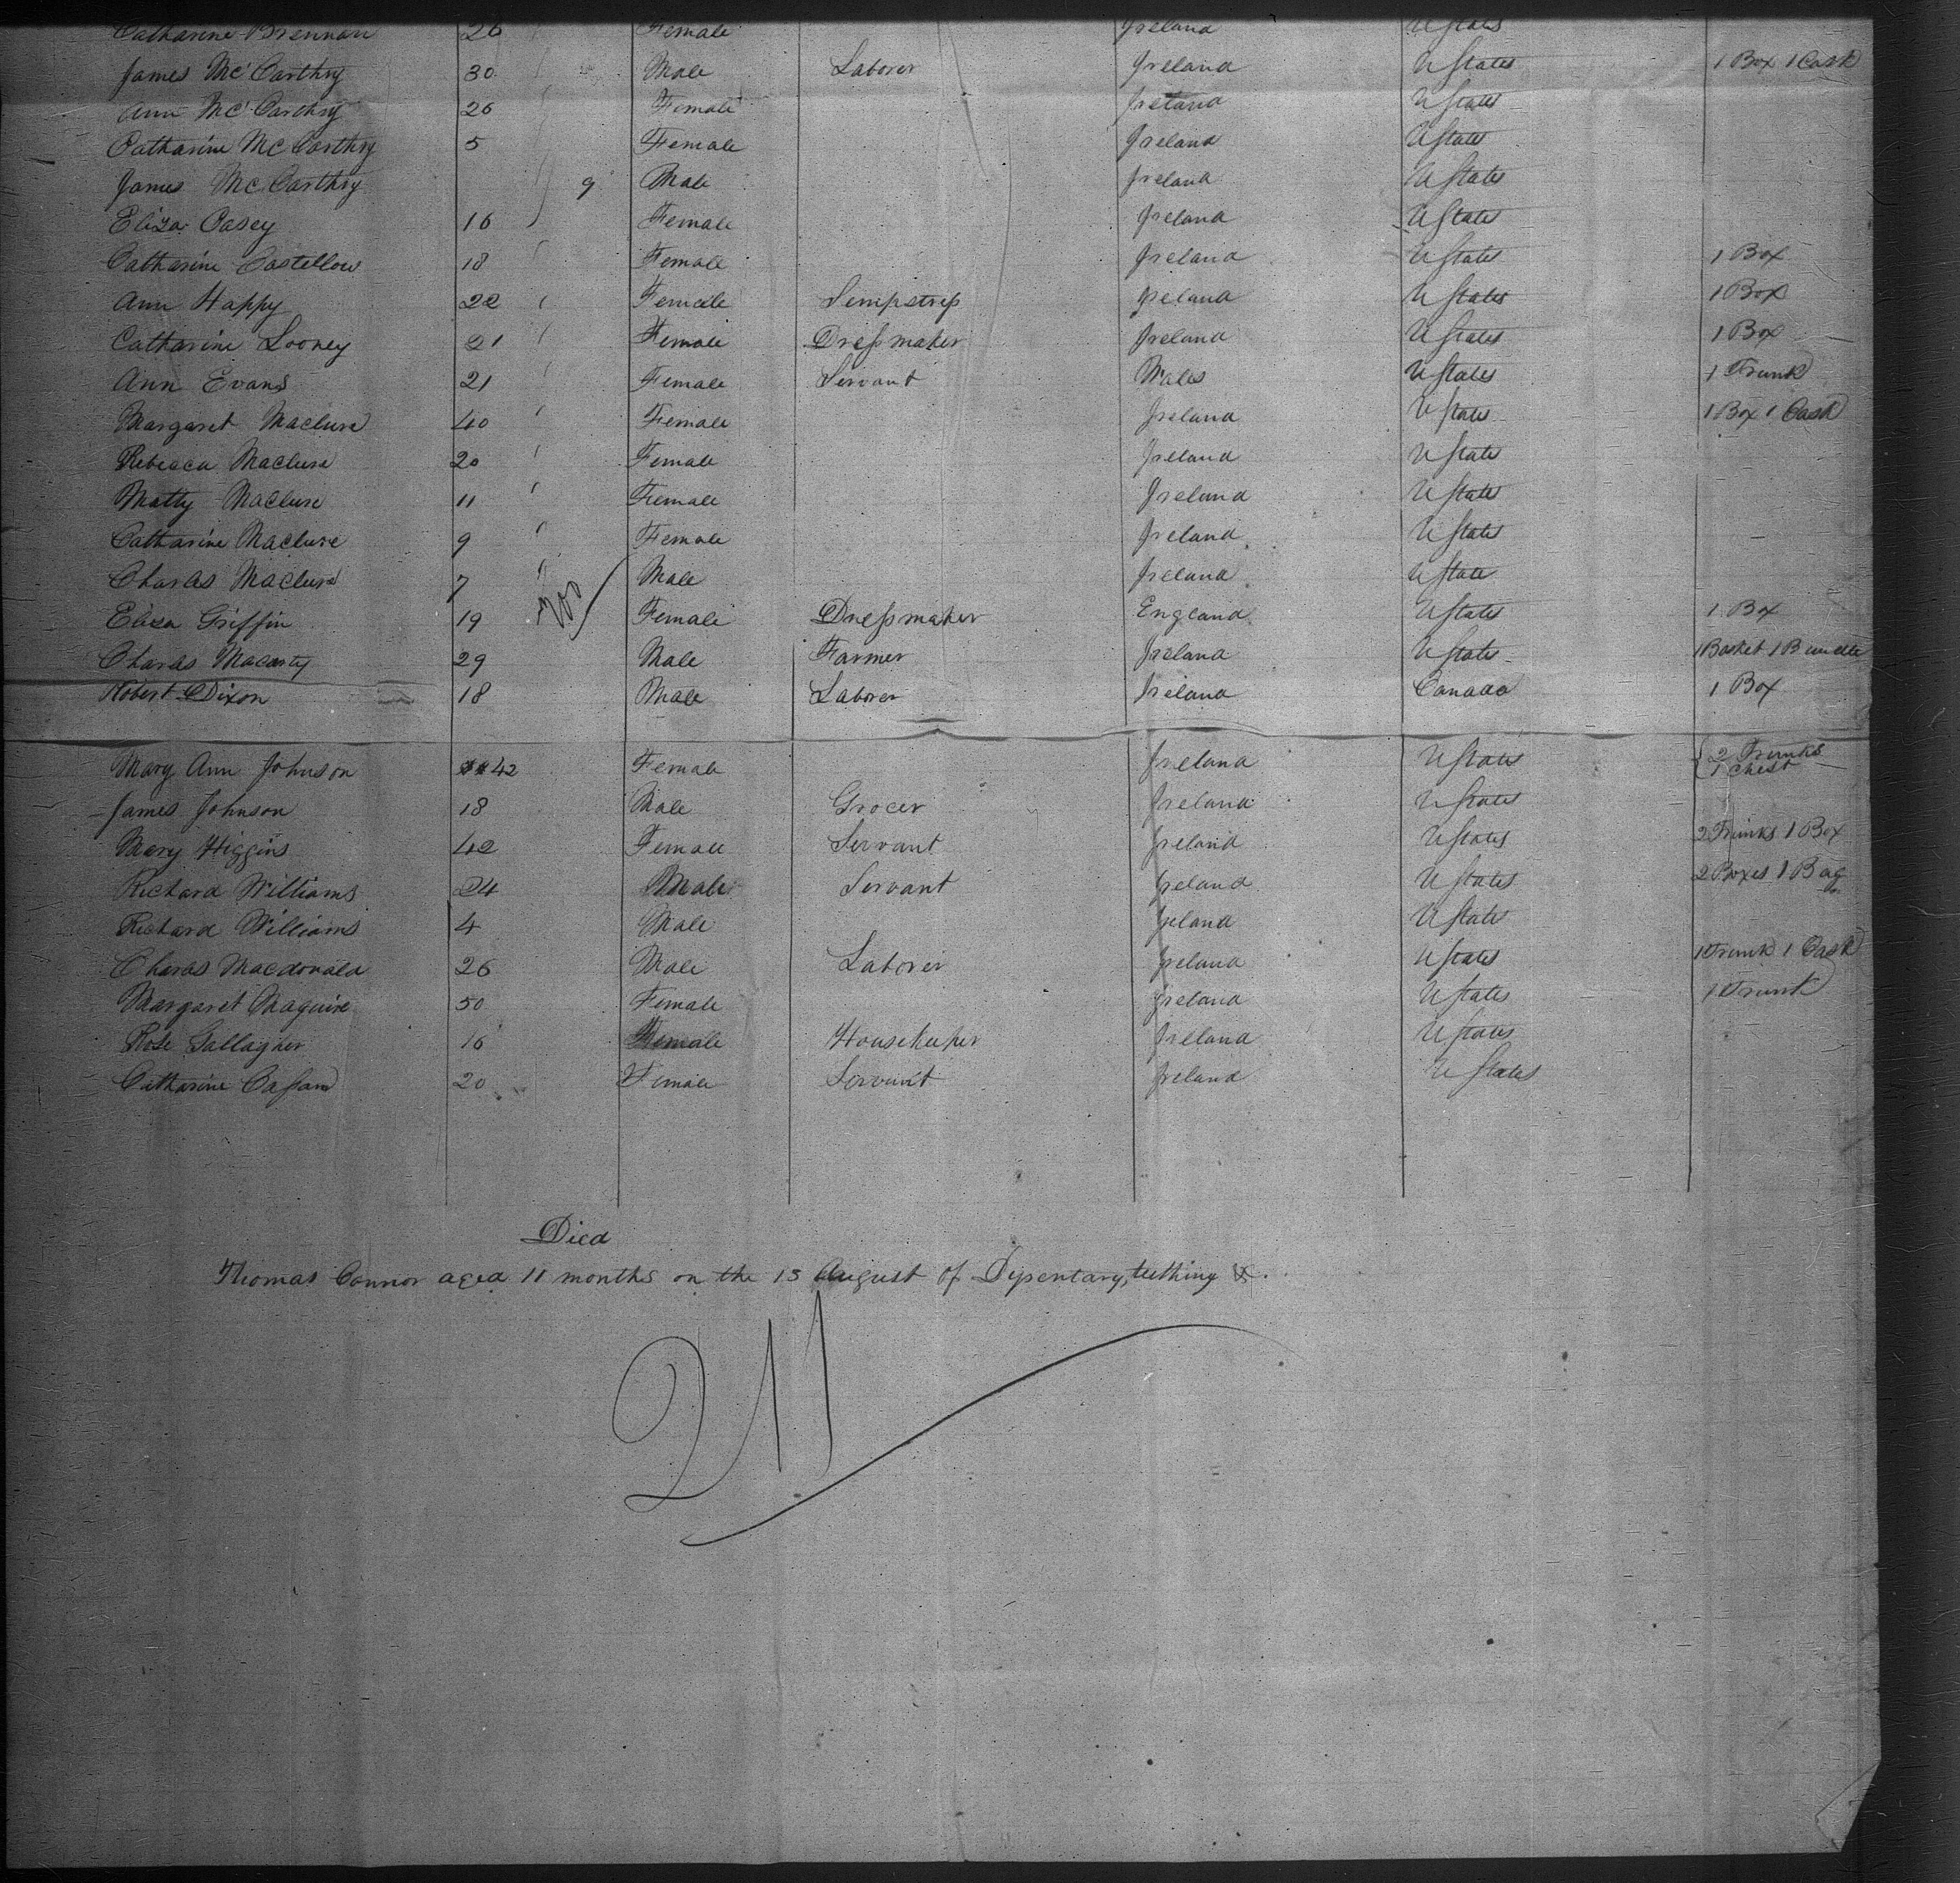 Catharine Brennan 26 Female Ireland U States
James Mc'Carthy 30 Male Laborer Ireland U States 1 Box 1 Cask
Ann Mc'Carthy 26 Female Ireland U States
Catharine McCarthy 5 Female Ireland U States
James McCarthy 9 Male Ireland U States
Eliza Casey 16 Female Ireland U States
Catharine Costellow 18 Female Ireland U States 1 Box
Ann Happy 22 Female Sempstress Ireland U States 1 Box
Catharine Looney 21 Female Dressmaker Ireland U States 1 Box
Ann Evans 21 Female Servant Wales U States 1 Trunk
Margaret Maclure 40 Female Ireland U States 1 Box 1 Cask
Rebecca Maclure 20 Female Ireland U States
Matty Maclure 11 Female Ireland U States
Catharine Maclure 9 Female Ireland U States
Charles Maclure 7 Male Ireland U State
Eliza Griffin 19 200 Female Dressmaker England U States 1 Box
Charles Macarty 29 Male Farmer Ireland U States 1 Basket 1 Bundle
Robert Dixon 18 Male Laborer Ireland Canada 1 Box
Mary Ann Johnson 42 Female Ireland U States 2 Trunks
1 Chest
James Johnson 18 Male Grocer Ireland U States
Mary Higgins 42 Female Servant Ireland U States 2 Trunks 1 Box
Richard Williams 24 Male Servant Ireland U States 2 Boxes 1 Bag
Richard Williams 4 Male Ireland U States
Charles Macdonald 26 Male Laborer Ireland U States 1 Trunk 1 Cask
Margaret Maguire 50 Female Ireland U States 1 Trunk
Rose Gallagher 16 Female Housekeeper Ireland U States
Catharine Cassam 20 Female Servant Ireland U States
Died
Thomas Connor aged 11 months on the 13 August of Dysentary, teething &c.
211